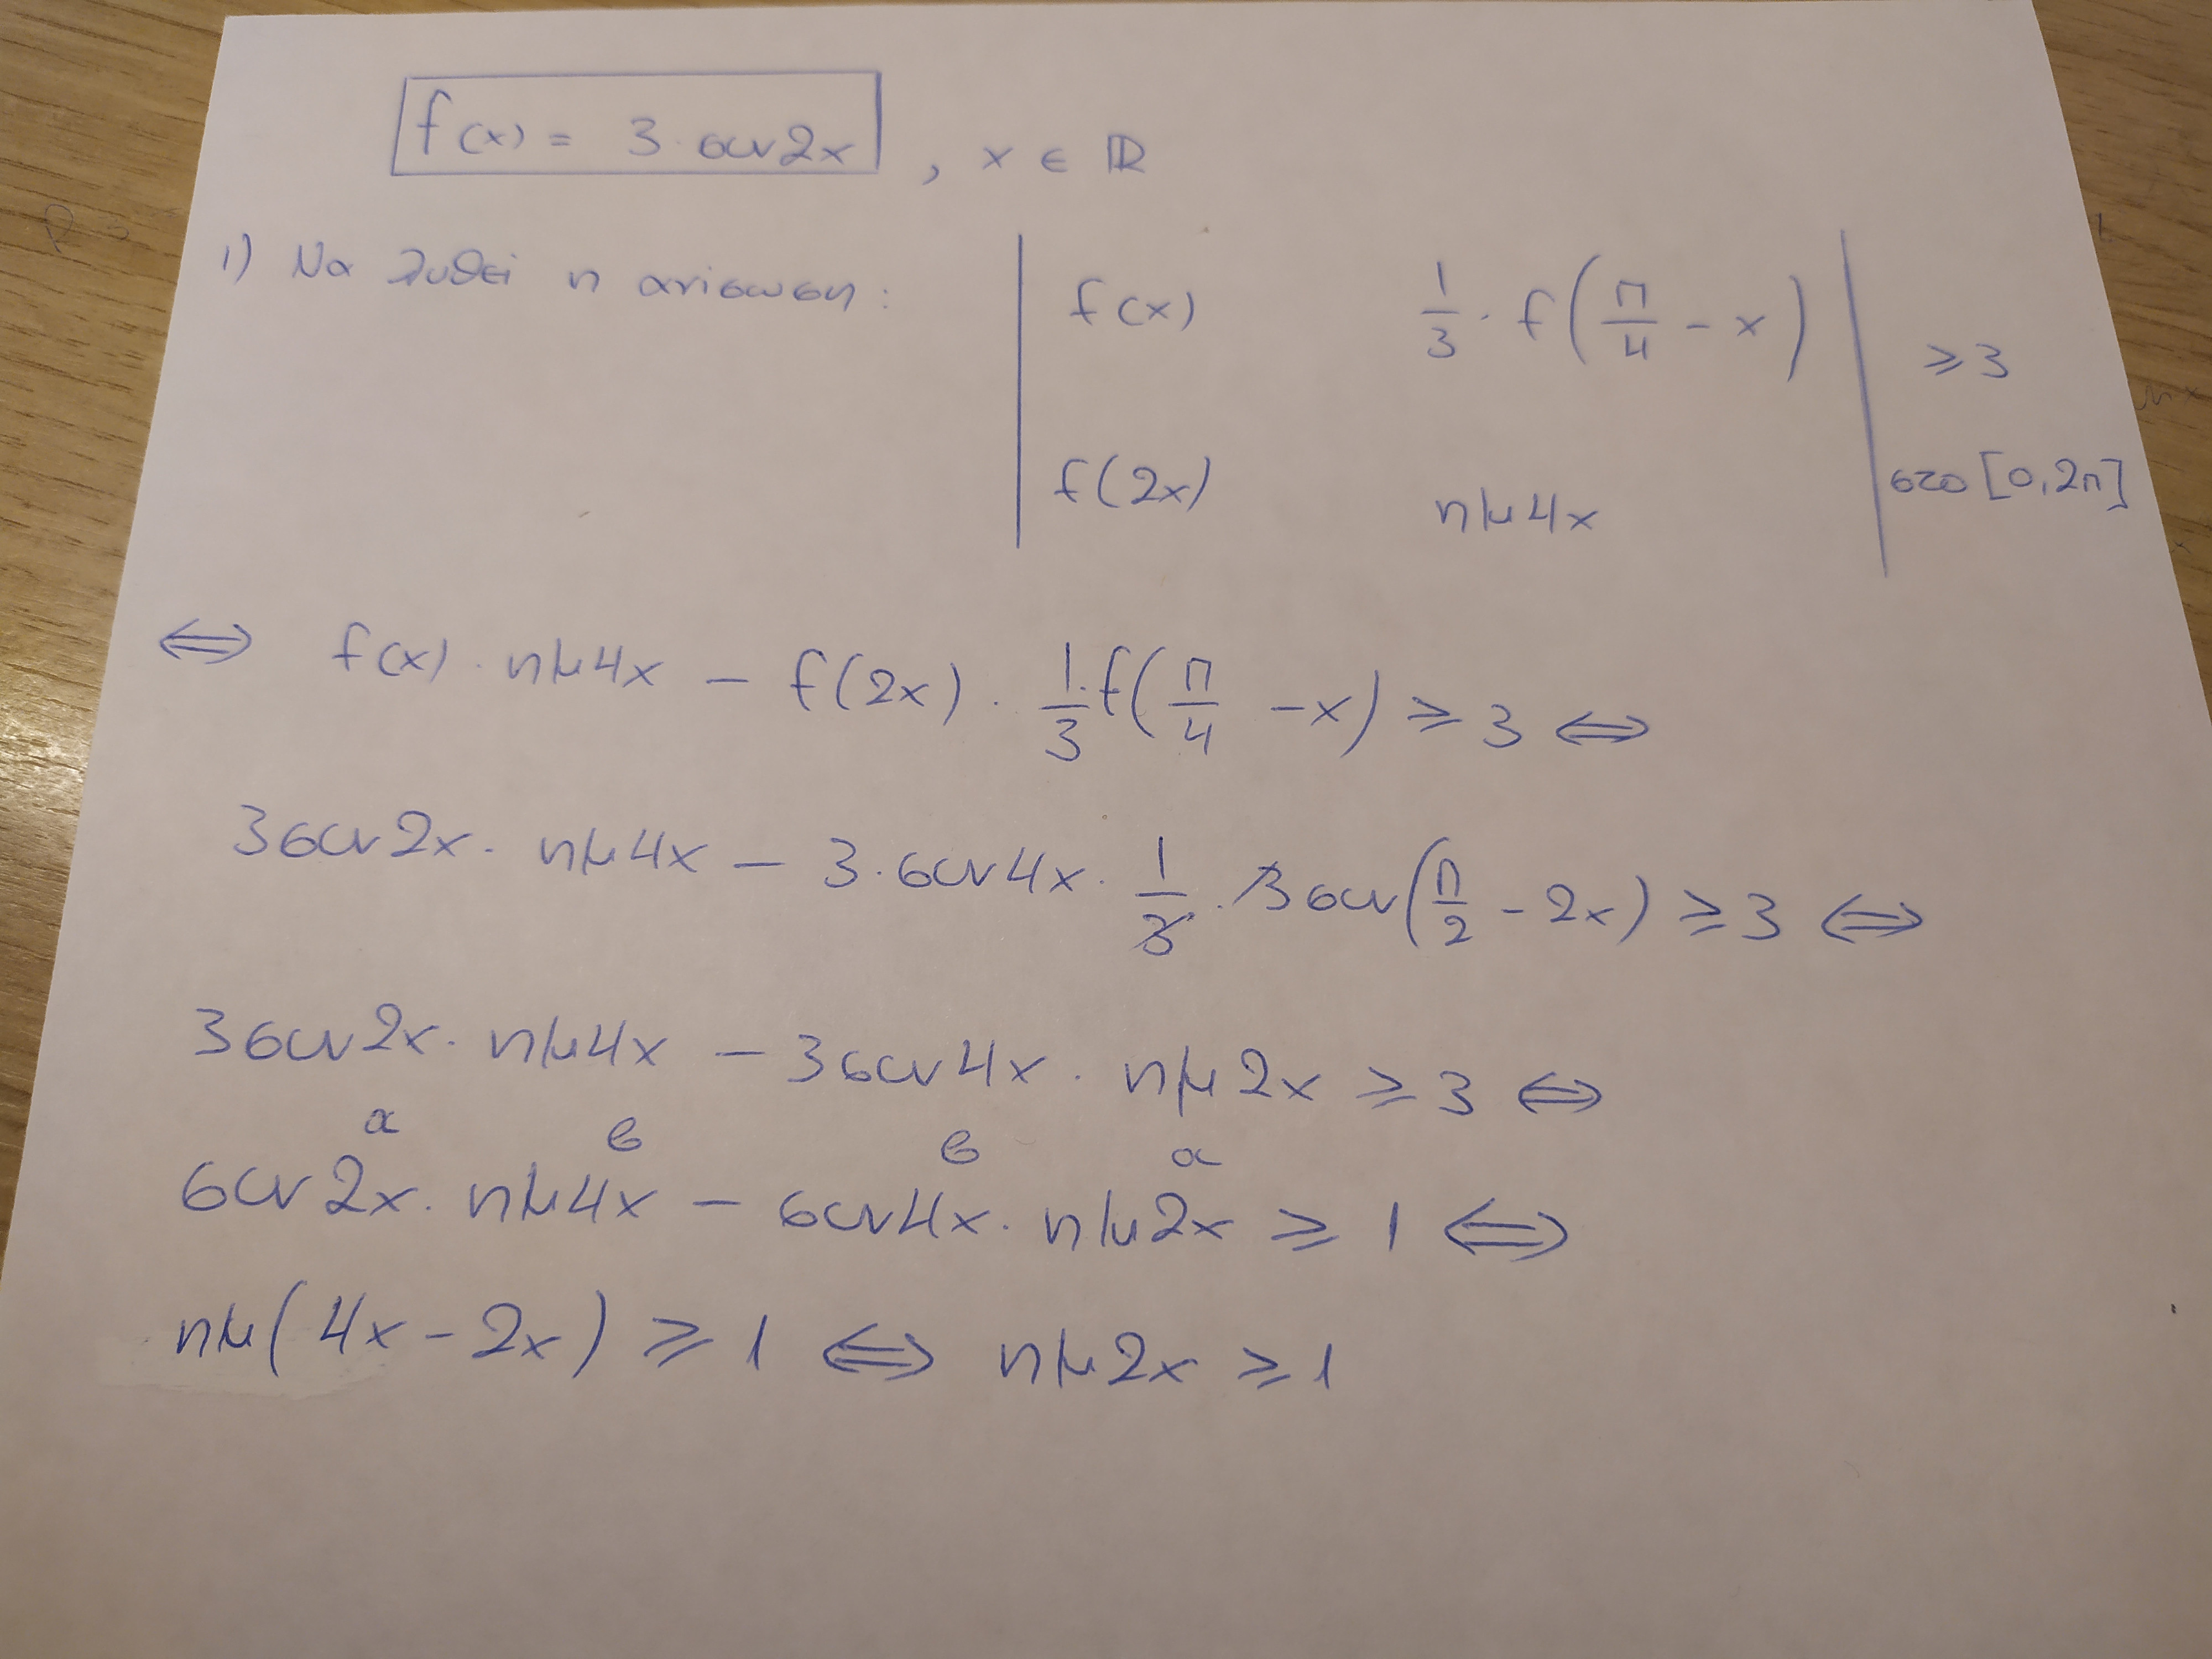 f(x) = 3·συν2x , x ∈ ℝ
1) Να λυθεί η ανίσωση: | f(x) 1/3 · f(π/4 - x) | ≥ 3
| f(2x) ημ4x | στο [0, 2π]
⇔ f(x) · ημ4x - f(2x) · 1/3 · f(π/4 - x) ≥ 3 ⇔
3συν2x · ημ4x - 3·συν4x · 1/3 · 3συν(π/2 - 2x) ≥ 3 ⇔
3συν2x · ημ4x - 3συν4x · ημ2x ≥ 3 ⇔
α β β α
συν2x · ημ4x - συν4x · ημ2x ≥ 1 ⇔
ημ(4x - 2x) ≥ 1 ⇔ ημ2x ≥ 1